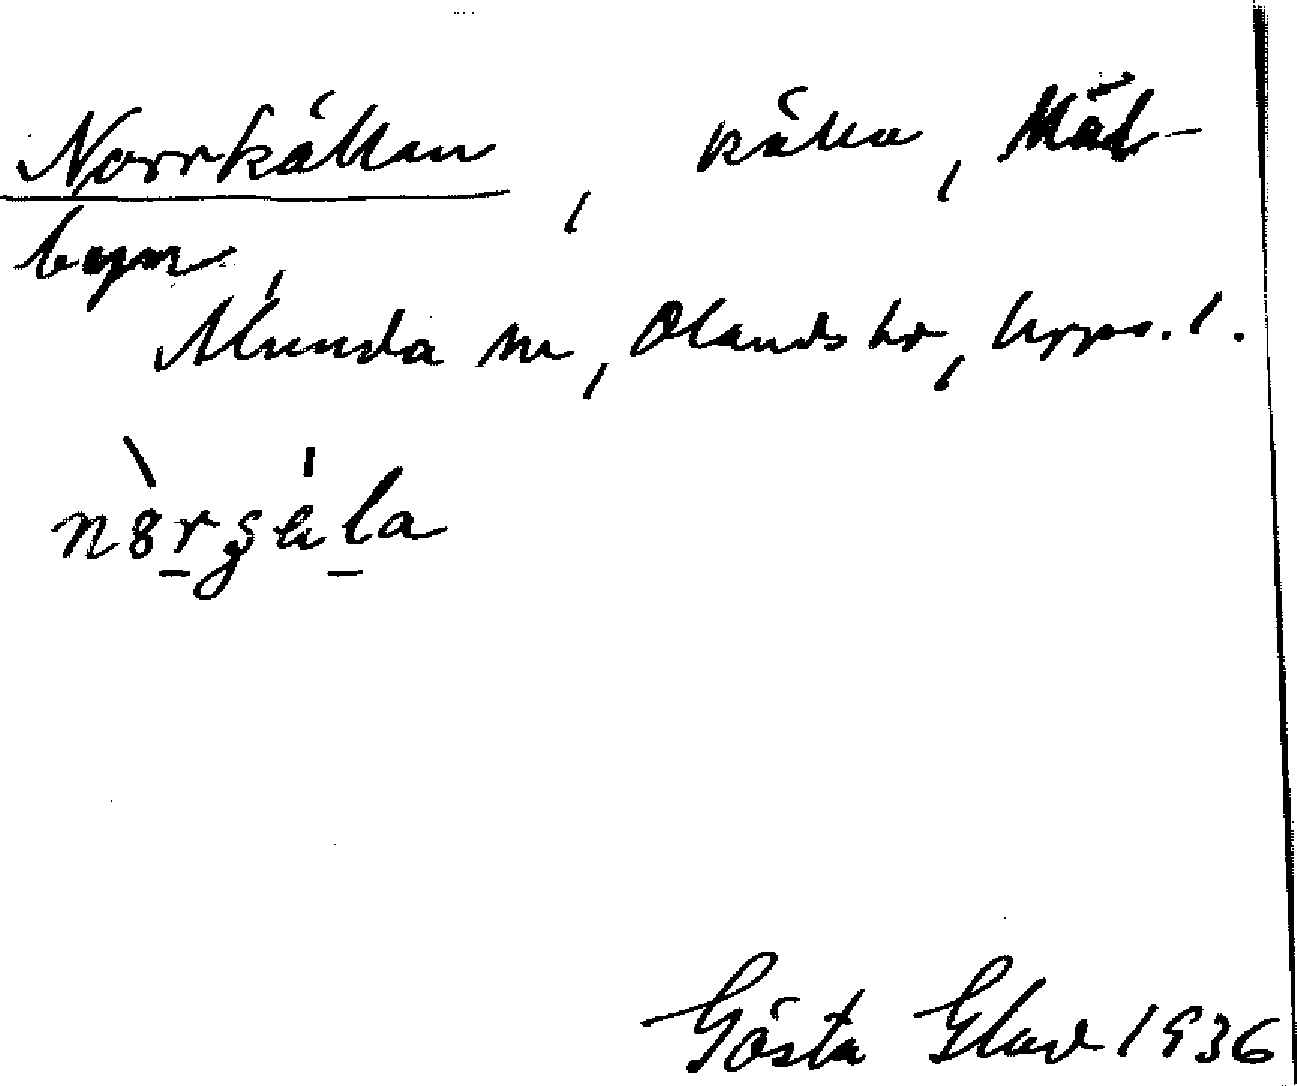 Norrkällan, källa, Mäl-
byn,
Alunda sn, Olands hd, Upps. l.
Gösta Elow 1936